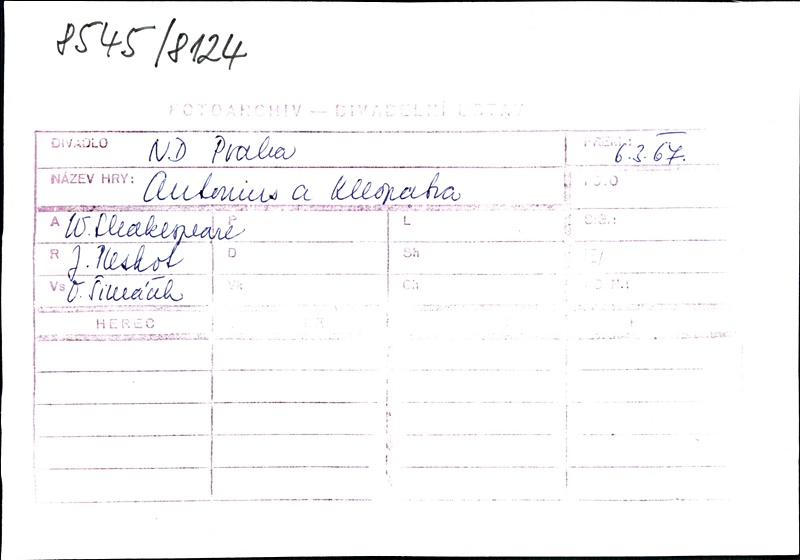 8545/8124
FOTOARCHIV — DIVADELNÍ ÚSTAV
DIVADLO ND Praha PREM.: 6.3.67.
NÁZEV HRY: Antonius a Kleopatra FOTO
A W. Shakespeare P L SIG.:
R J. Pleskot D Sh
Vs O. Šimáček Vk Ch
HEREC